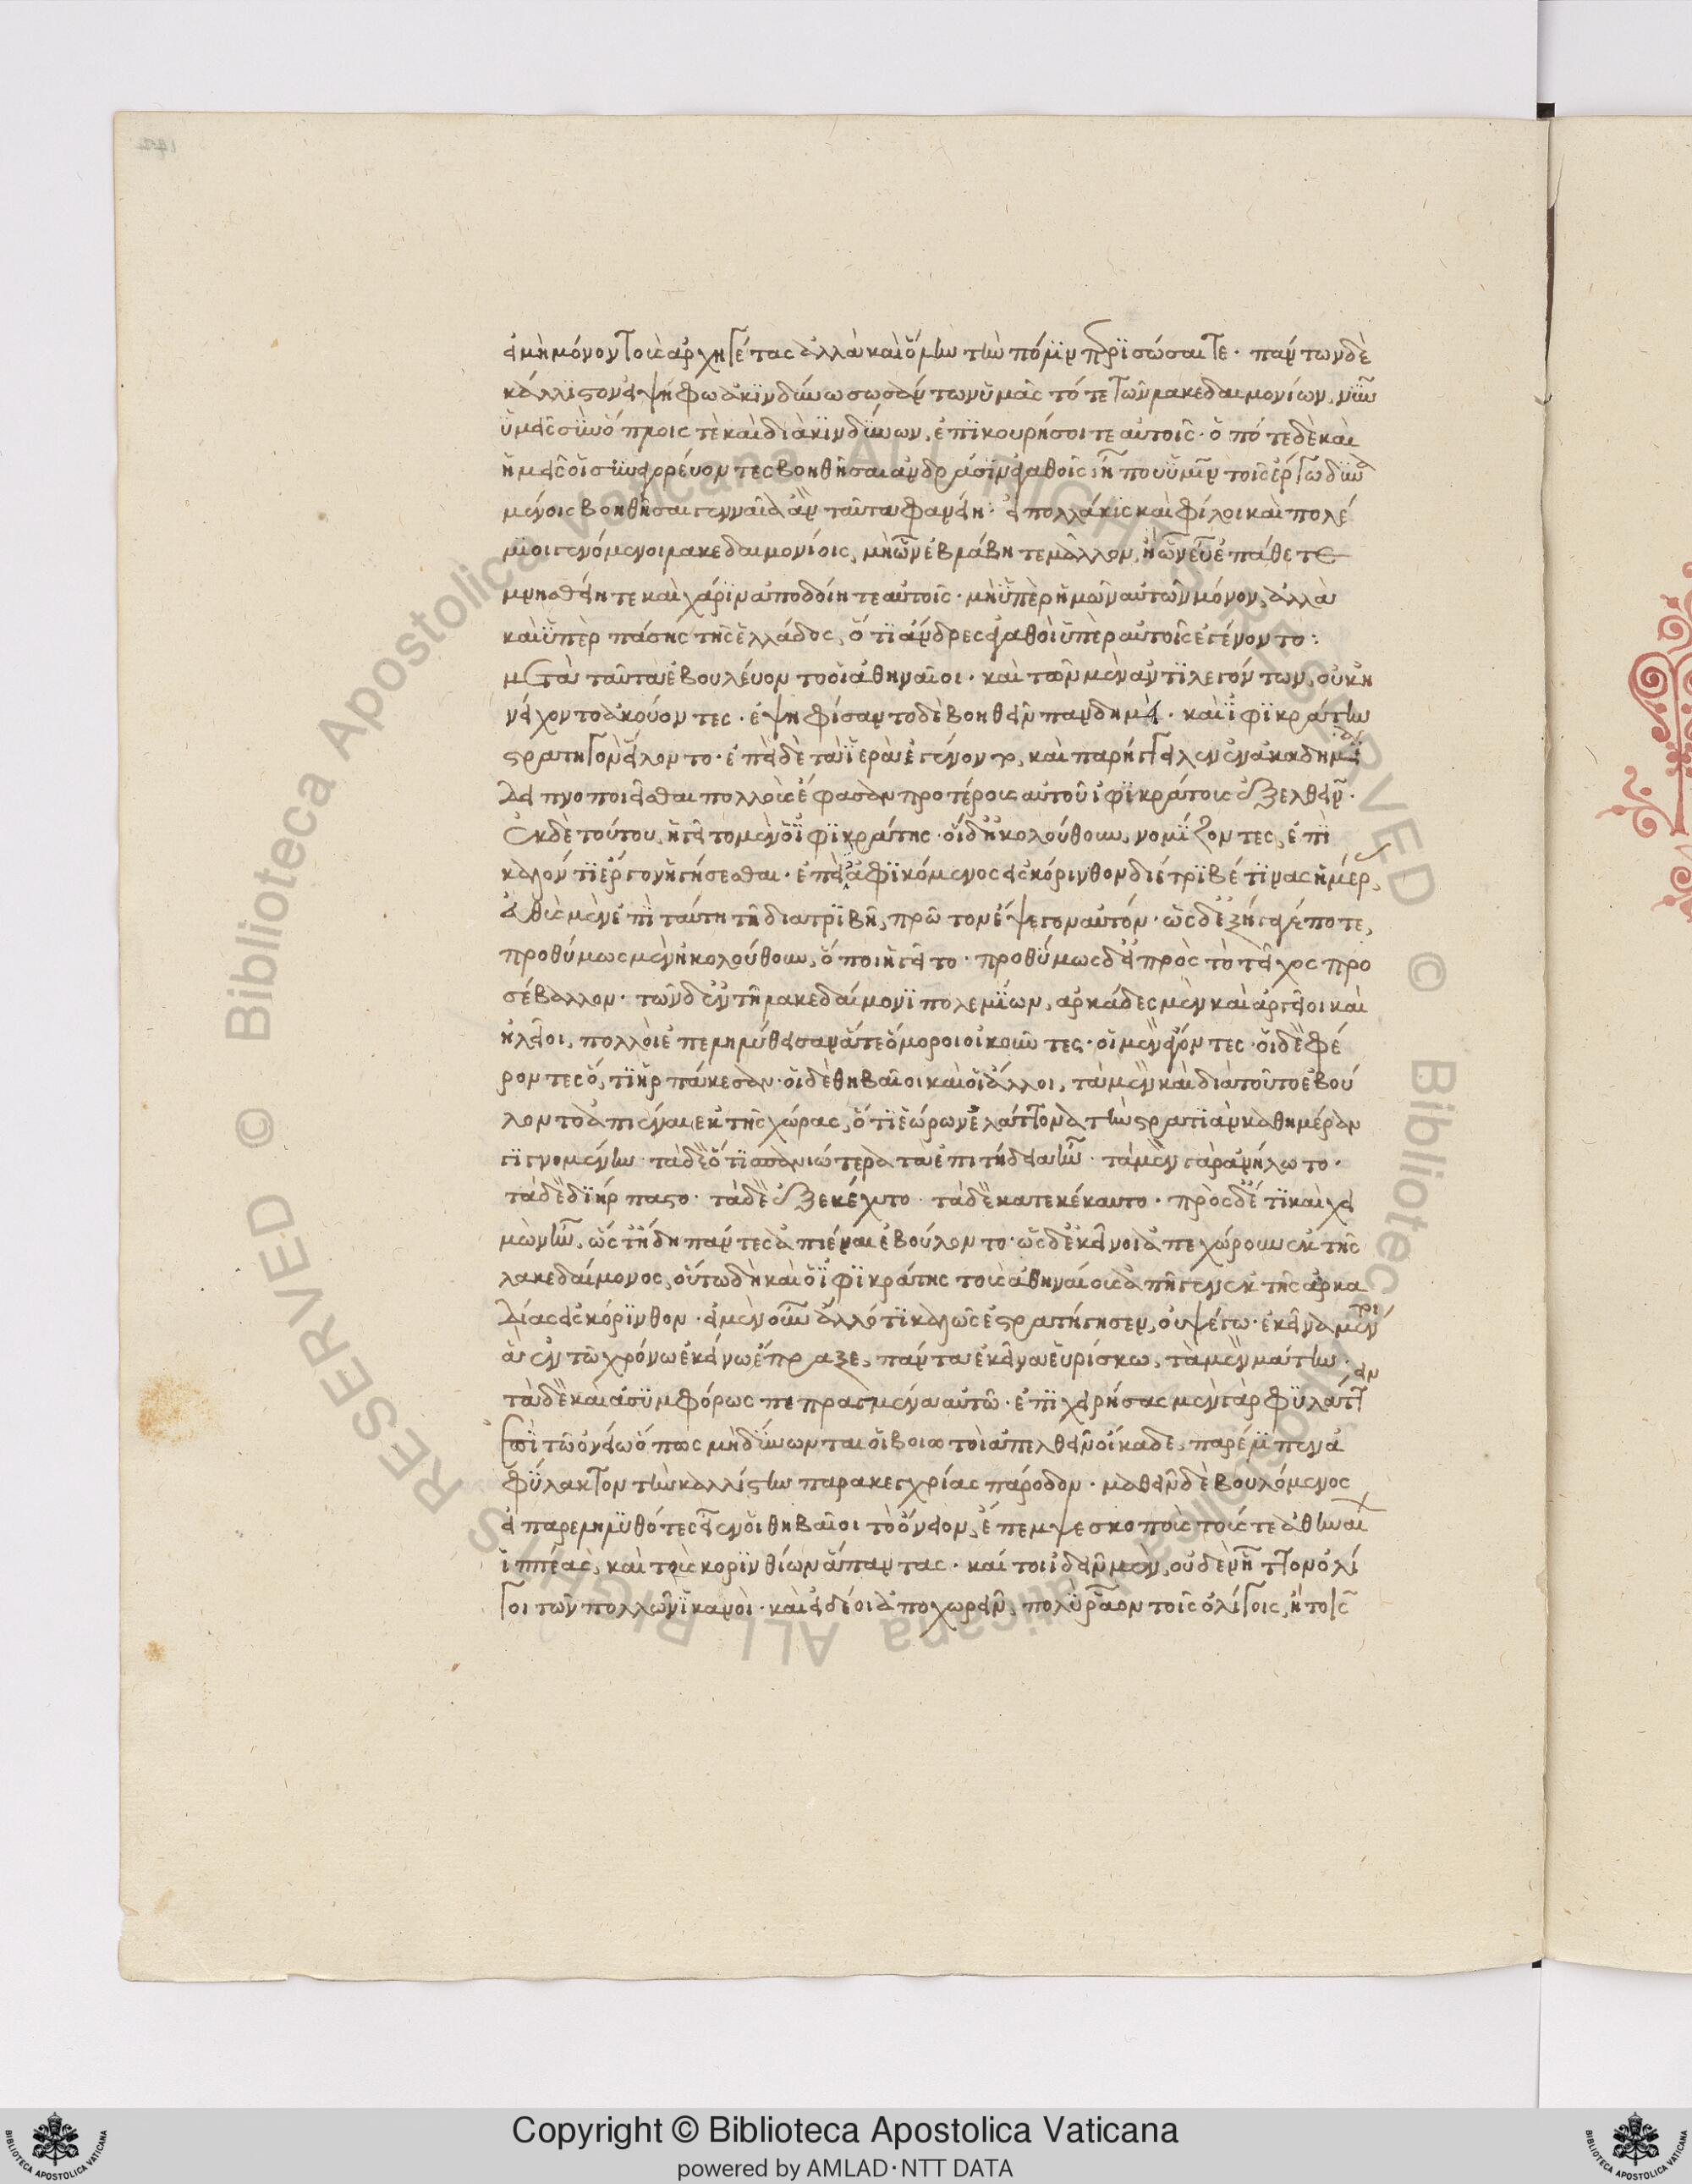 εἰ μὴ μόνον τοὺς ἀρχηγέτας ἀλλὰ καὶ ὅλην τὴν πόλιν περισώσαιτε· πάντων δὲ
κάλλιστον εἰ ψήφω ἀκινδύνω σωσάντων ὑμᾶς τότε τῶν λακεδαιμονίων, νῦν
ὑμεῖς σὺν ὅπλοις τὲ καὶ διὰ κινδύνων, ἐπικουρήσοιτε αὐτοῖς· ὁπότε δὲ καὶ
ἡμεῖς οἱ συναγορεύοντες βοηθῆσαι ἀνδράσιν ἀγαθοῖς, ἦ που ὑμῖν τοῖς ἔργω δυνα
μένοις βοηθῆσαι γενναῖα ἂν ταῦτα φανείη· εἰ πολλάκις καὶ φίλοι καὶ πολέ
μιοι γενόμενοι λακεδαιμονίοις, μὴ ὧν ἐβλάβητε μᾶλλον, ἢ ὧν εὖ ἐπάθετε
μνησθείητε καὶ χάριν ἀποδοίητε αὐτοῖς· μὴ ὑπὲρ ἡμῶν αὐτῶν μόνον, ἀλλὰ
καὶ ὑπὲρ πάσης τῆς ἑλλάδος, ὅτι ἄνδρες ἀγαθοὶ ὑπὲρ αὐτοῖς ἐγένοντο:
μετὰ ταῦτα ἐβουλεύοντο οἱ ἀθηναῖοι· καὶ τῶν μὲν ἀντιλεγόντων, οὐκ ἠ
νείχοντο ἀκούοντες· ἐψηφίσαντο δὲ βοηθεῖν πανδημεί· καὶ ἰφικράτην
στρατηγὸν εἵλοντο· ἐπεὶ δὲ τὰ ἱερὰ ἐγένοντο, καὶ παρήγγειλεν ἐν ἀκαδημεία
δειπνοποιεῖσθαι πολλοὺς ἔφασαν προτέρους αὐτοῦ ἰφικράτους ἐξελθεῖν·
Ἐκ δὲ τούτου, ἡγεῖτο μὲν ὁ ἰφικράτης· οἱ δ' ἠκολούθουν, νομίζοντες, ἐπὶ
καλόν τι ἔργον ἡγήσεσθαι· ἐπεὶ ἀφικόμενος εἰς κόρινθον διέτριβέ τινας ἡμέρ,
εὐθὺς μὲν ἐπὶ ταύτη τῆ διατριβῆ, πρῶτον ἔψεγον αὐτόν· ὡς δ' ἐξήγαγέ ποτε,
προθύμως μὲν ἠκολούθουν, ὅποι ἡγεῖτο· προθύμως δ' εἰ πρὸς τὸ τεῖχος προ
σέβαλλον· τῶν δ' ἐν τῆ λακεδαίμονι πολεμίων, ἀρκάδες μὲν καὶ ἀργεῖοι καὶ
ἠλεῖοι, πολλοὶ ἐπεληλύθεισαν ἅτε ὅμοροι οἰκοῦντες· οἱ μὲν ἄγοντες· οἱ δὲ φέ
ροντες ὅ, τι ἡρπάκεσαν· οἱ δὲ θηβαῖοι καὶ οἱ ἄλλοι, τὰ μὲν καὶ διὰ τοῦτο ἐβού
λοντο ἀπιέναι ἐκ τῆς χώρας, ὅτι ἑώρων ἐλάττονα τὴν στρατιὰν καθημέραν
γιγνομένην· τὰ δὲ ὅτι σπανιώτερα τὰ ἐπιτήδεια ἦν· τὰ μὲν γὰρ ἀνήλωτο·
τὰ δὲ διήρπαστο· τὰ δὲ ἐξεκέχυτο· τὰ δὲ κατεκέκαυτο· πρὸς δ' ἔτι καὶ χει
μὼν ἦν, ὥστ' ἤδη πάντες ἀπιέναι ἐβούλοντο· ὡς δ' ἐκεῖνοι ἀπεχώρουν ἐκ τῆς
λακεδαίμονος, οὕτω δὴ καὶ ὁ ἰφικράτης τοὺς ἀθηναίους ἀπῆγεν ἐκ τῆς ἀρκα
δίας εἰς κόρινθον· εἰ μὲν οὖν ἄλλό τι καλῶς ἐστρατήγησεν, οὐ ψέγω· ἐκεῖνα μέντοι
ἃ ἐν τῶ χρόνω ἐκείνω ἔπραξε, πάντα ἐκεῖνα εὑρίσκω, τὰ μὲν μάτην·
τὰ δὲ καὶ ἀσυμφόρως πεπραγμένα αὐτῶ· ἐπιχειρήσας μὲν γὰρ φυλάττειν
ἐπὶ τῶ ὀνείω ὅπως μὴ δύνωνται οἱ βοιωτοὶ ἀπελθεῖν οἴκαδε, παρέλιπεν ἀ
φύλακτον τὴν καλλίστην παρὰ κεγχρίας πάροδον· μαθεῖν δὲ βουλόμενος
εἰ παρεληλυθότες εἶεν οἱ θηβαῖοι τὸ ὄνειον, ἔπεμψε σκοποὺς τούς τε ἀθηναί
ἱππέας, καὶ τοὺς κορινθίων ἅπαντας· καί τοι ἰδεῖν μὲν, οὐδὲν ἧττον ὀλί
γοι τῶν πολλῶν ἱκανοὶ· καὶ εἰ δέοι ἀποχωρεῖν, πολὺ ῥᾶον τοῖς ὀλίγοις, ἢ τοῖς
Copyright © Biblioteca Apostolica Vaticana
powered by AMLAD·NTT DATA